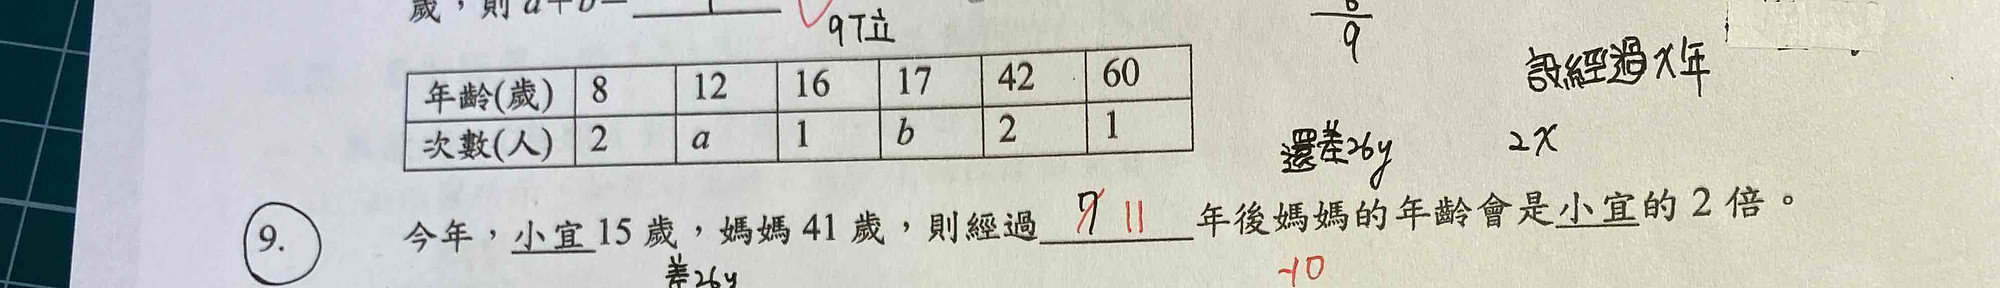 歲，則 a+b=
9位
9
設經過x年
年齡(歲) 8 12 16 17 42 60
次數(人) 2 a 1 b 2 1
還差26y 2x
9. 今年，小宜15歲，媽媽41歲，則經過 7 11 年後媽媽的年齡會是小宜的2倍。
差26y
-10